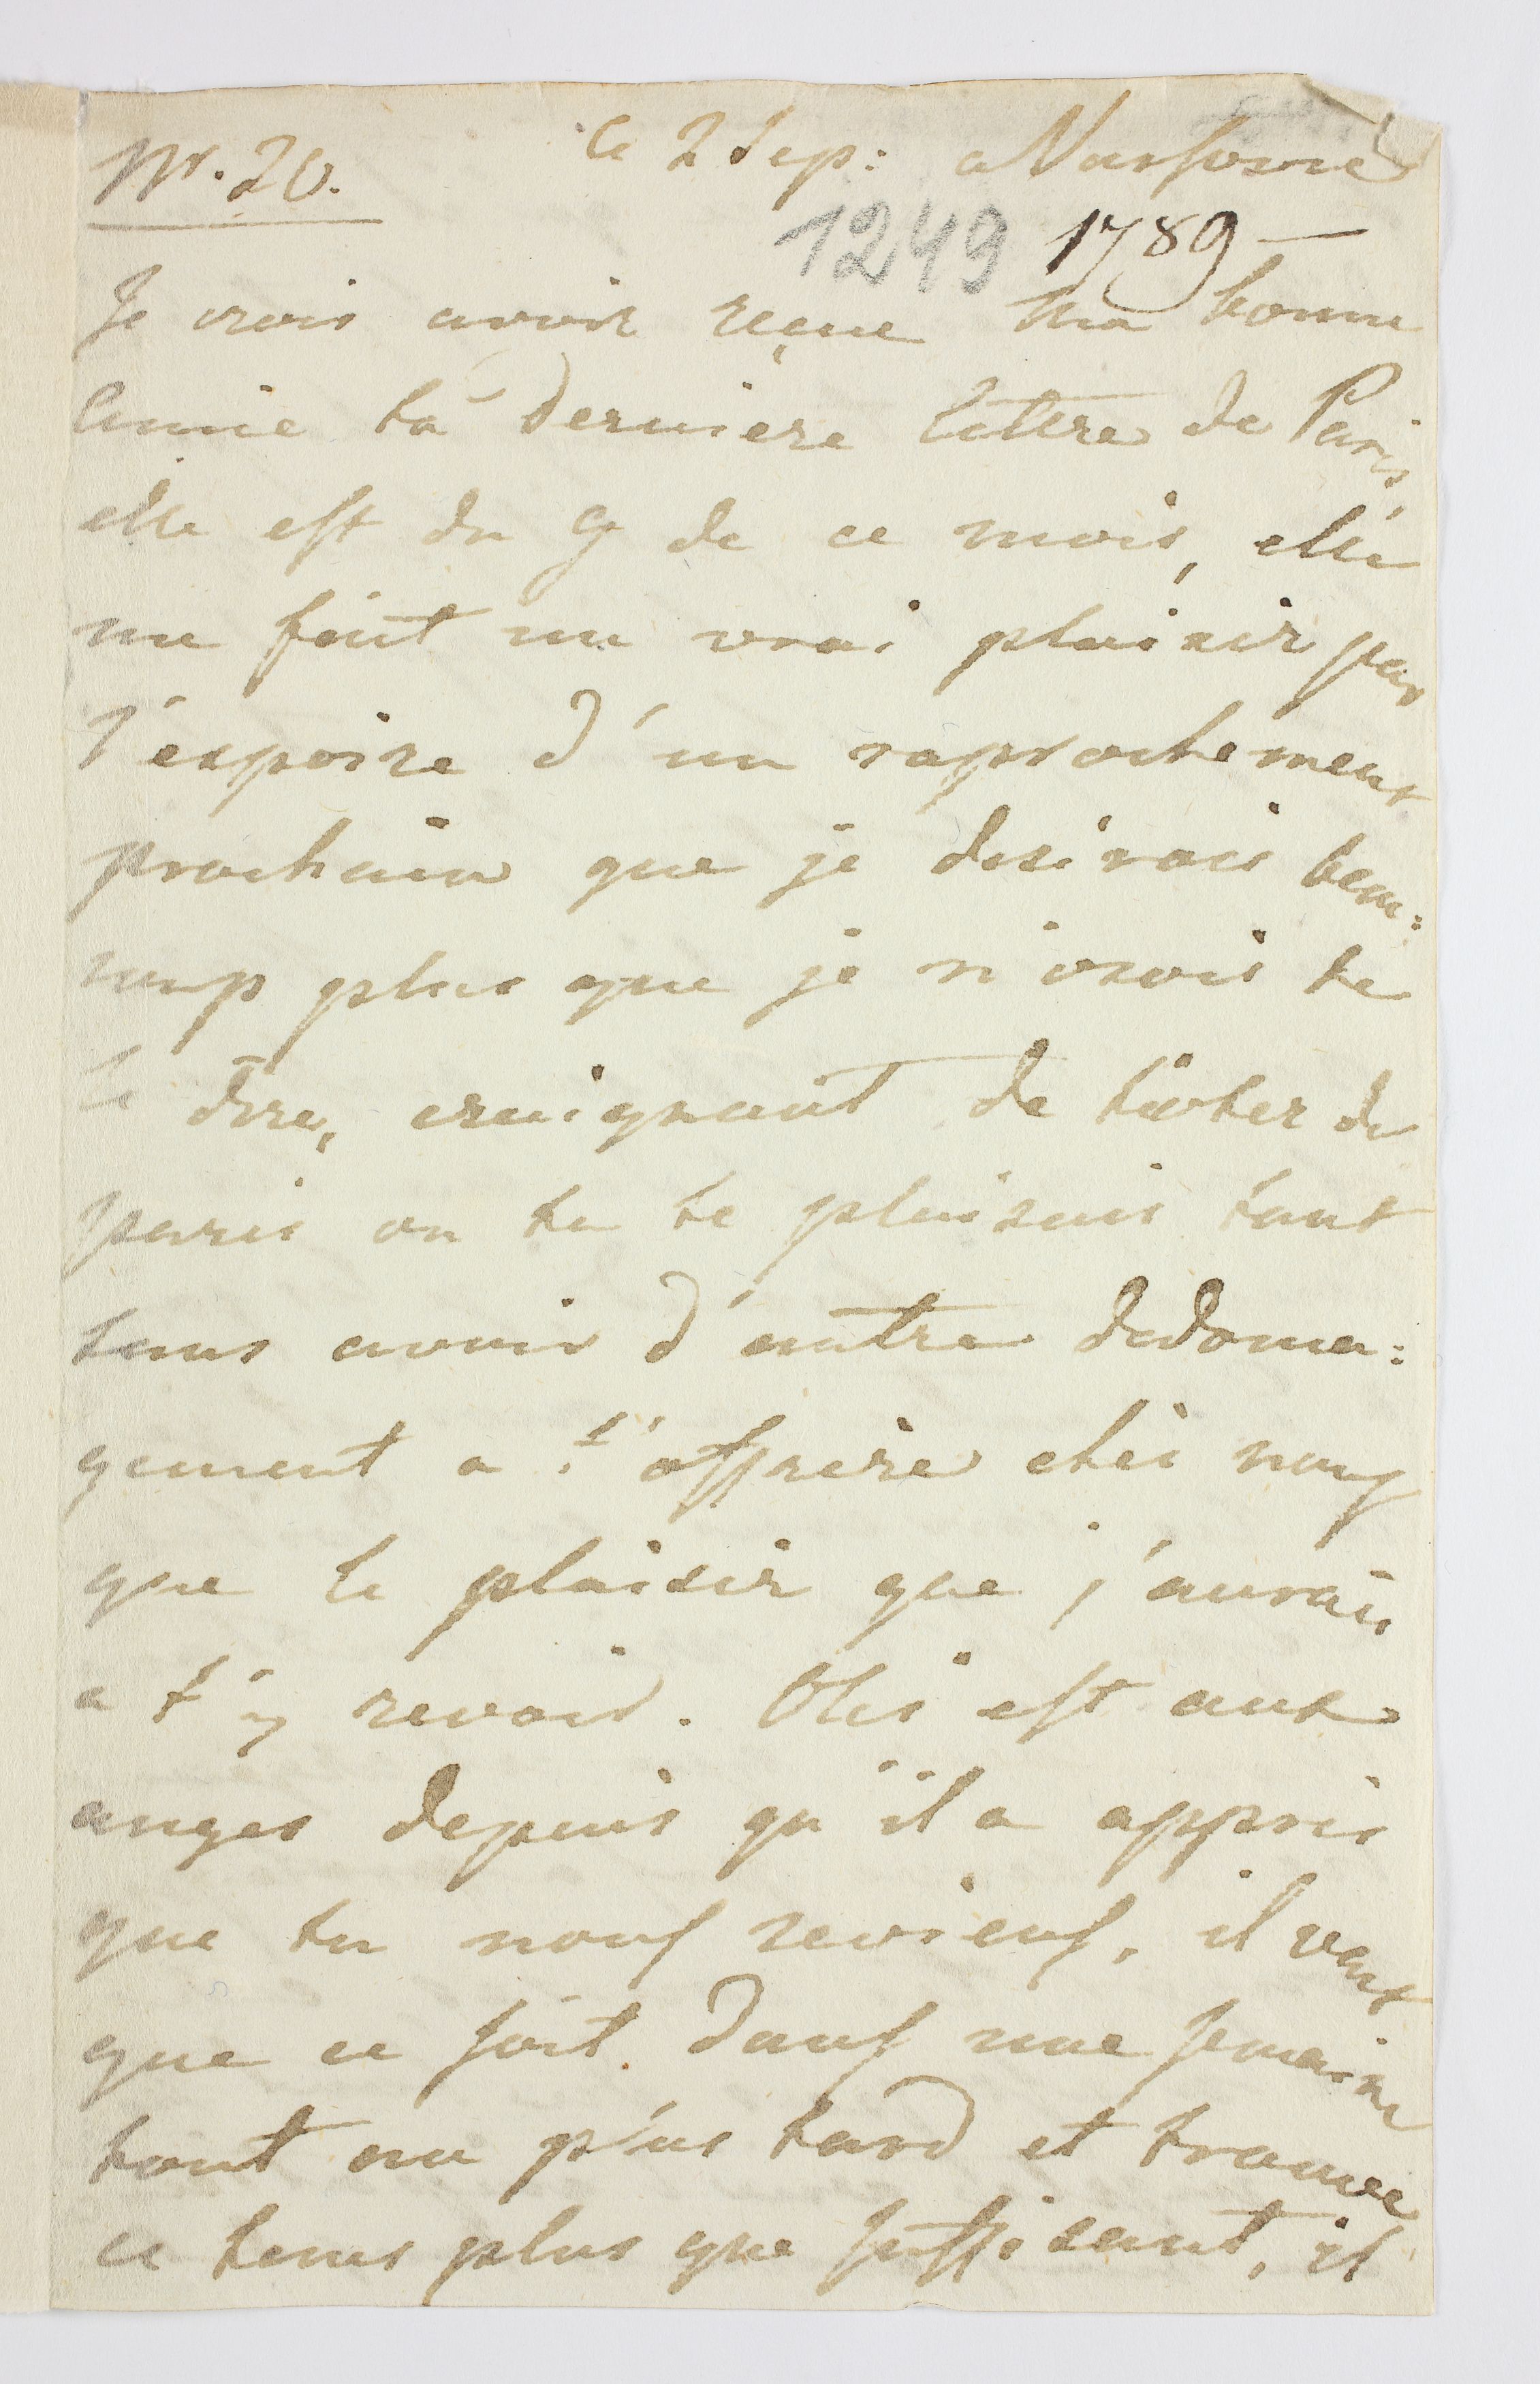 Nr. 20.
le 2 Sep: a Varsovie
1249 1789 —
Je crois avoir reçue ma bonne
Amie ta derniere lettre de Paris,
elle est du 9 de ce mois, elle
me fait un vrai plaisir par
l'espoire d'un raprochement
prochain que je desirais beau:
coup plus que je n'osois te
le dire, craignant de t'oter de
paris ou tu te plaisais tant
sans avoir d'autre dedoma:
gement a t'offrire chés nous
que le plaisir que j'aurais
a t'y revoir. Olés est aux
anges depuis qu'il a appris
que tu nous reviens, il veut
que ce soit dans une semaine
tout au plus tard et trouve
ce tems plus que suffisant, il